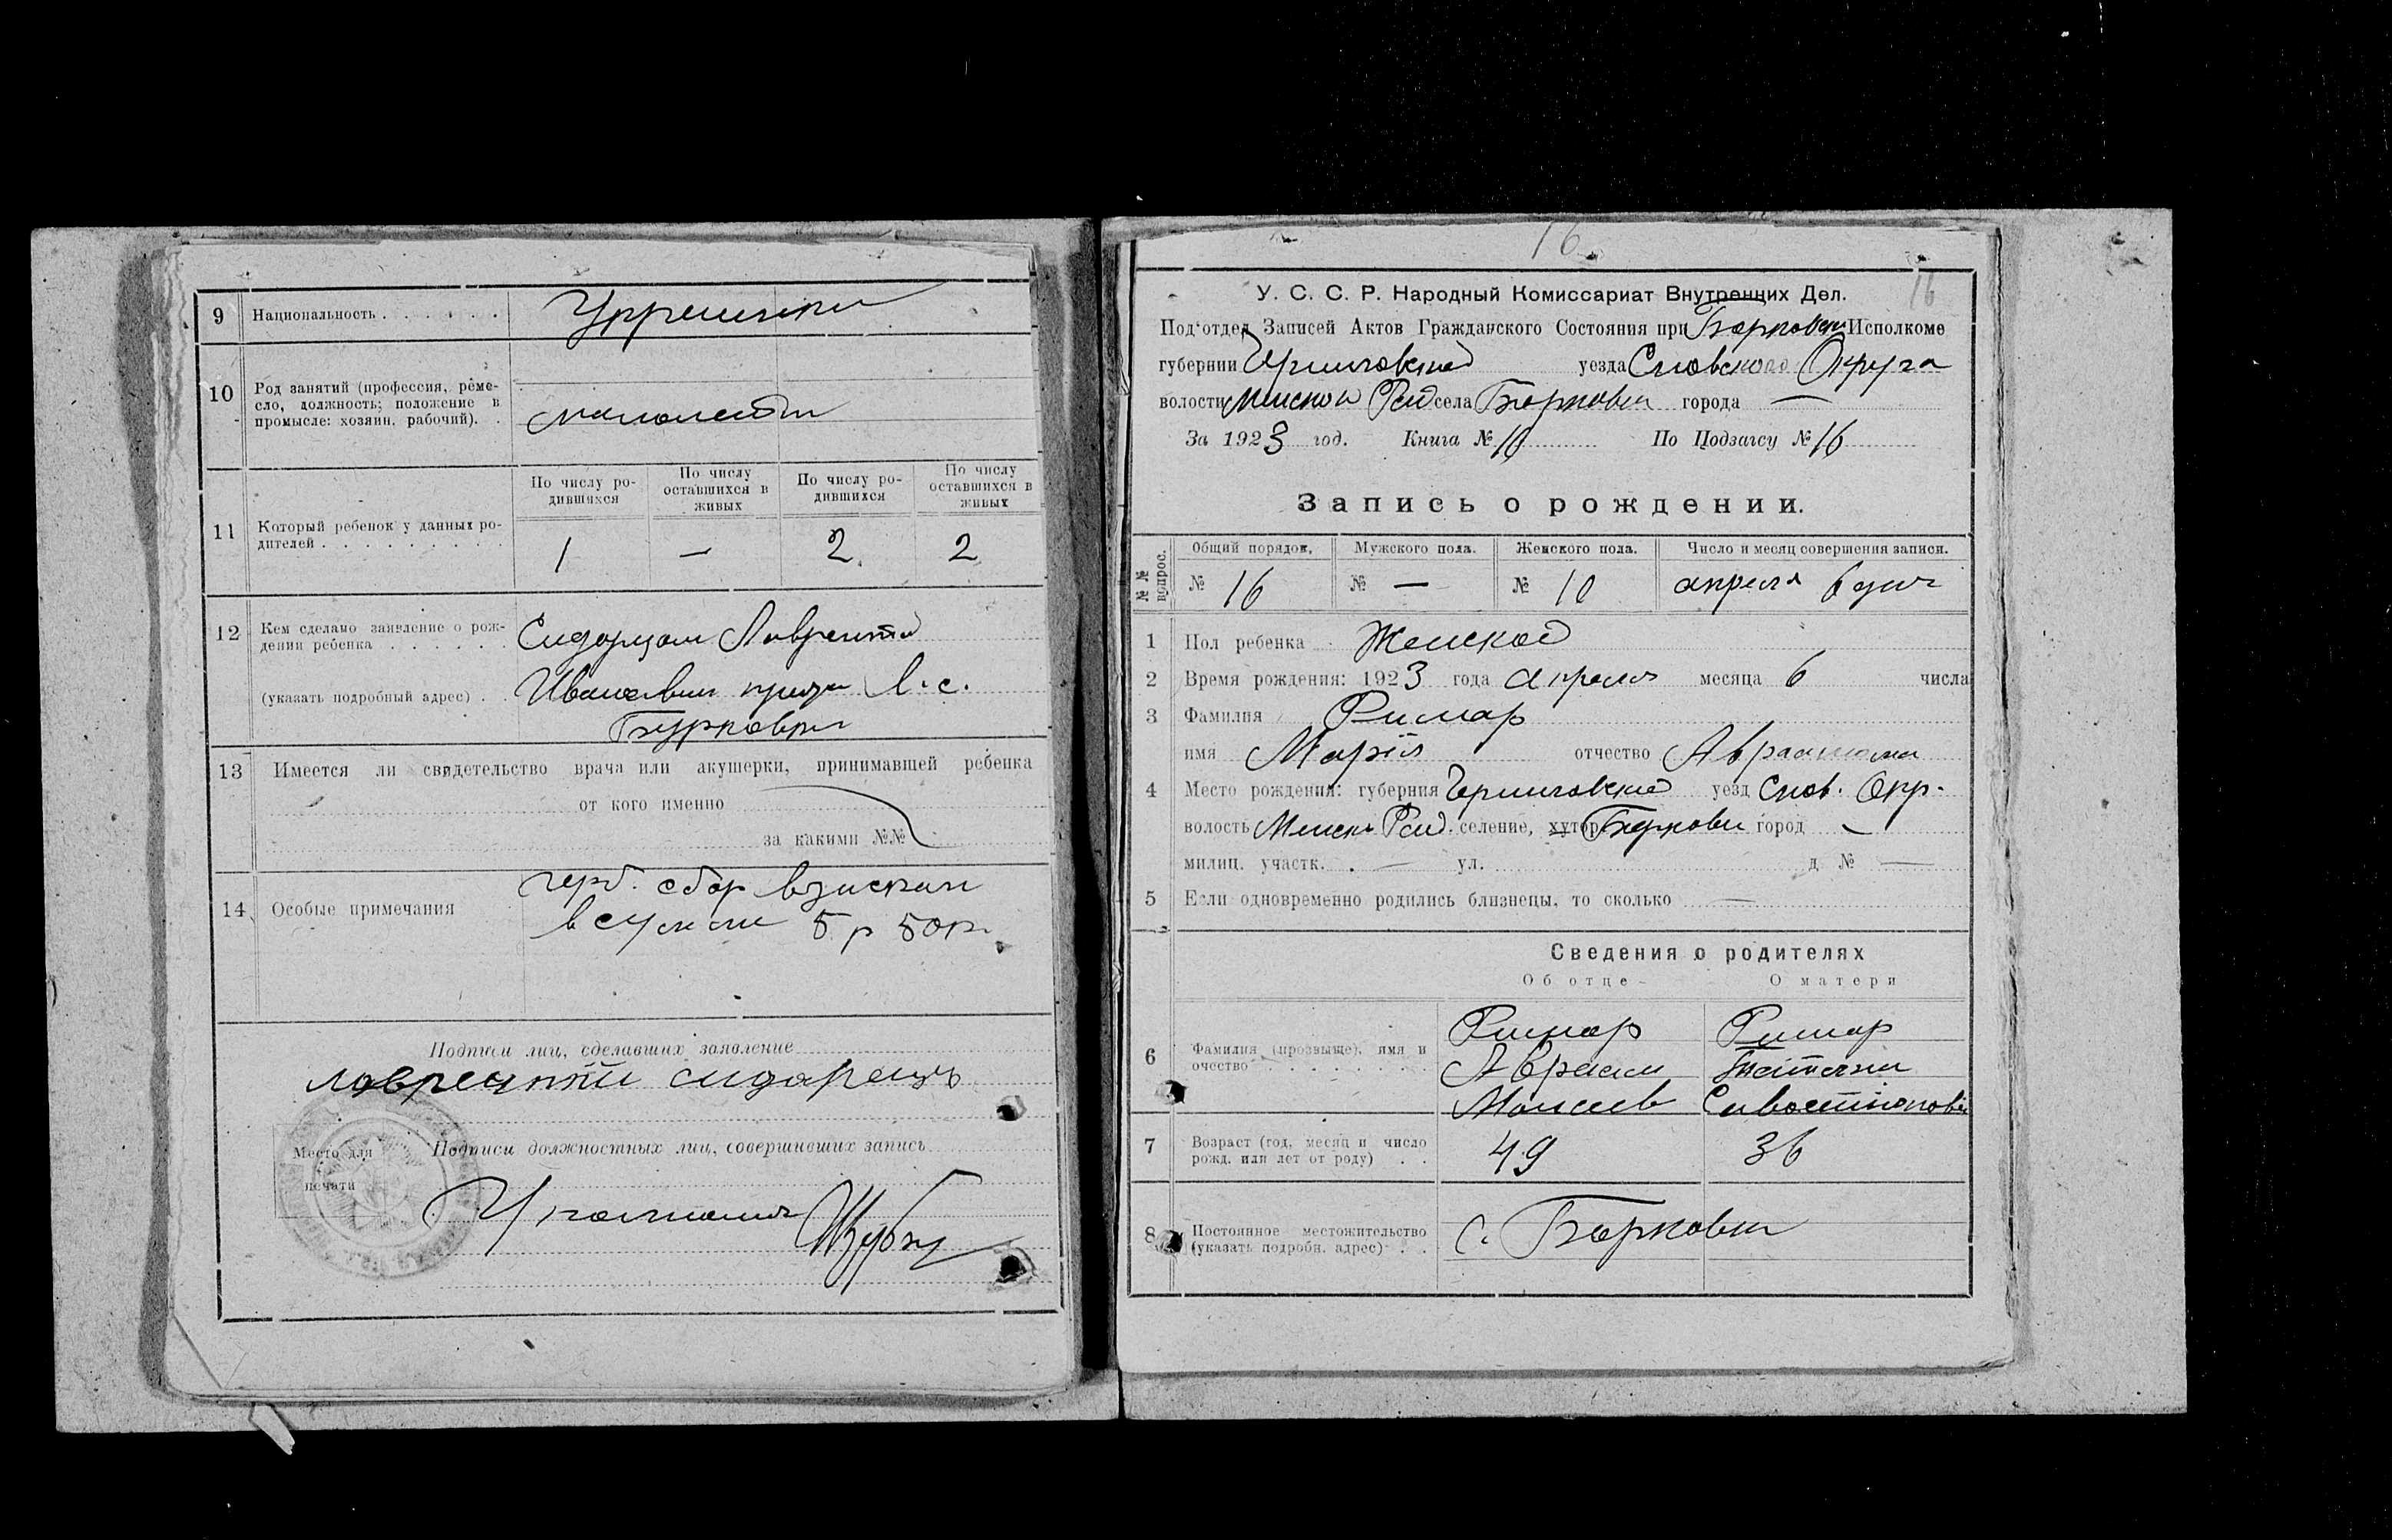 9 Национальность . . . . . .
10 Род занятий (профессия, реме-
сло, должность; положение в
промысле: хозяин, рабочий). .
По числу ро-
дившихся
По числу
оставшихся в
живых
По числу ро-
дившихся
По числу
оставшихся в
живых
11 Который ребенок у данных ро-
дителей . . . . . . . . .
1 — 2 2
12 Кем сделано заявление о рож-
дении ребенка . . . . . .
Лаврентий
(указать подробный адрес) . .
13 Имеется ли свидетельство врача или акушерки, принимавшей ребенка
от кого именно
за какими №№
14 Особые примечания
герб. сбор взискан
в сумми 5 р 50к.
Подписи лиц, сделавших заявление
лаврентий сидарецъ
Место для
печати
Подписи должностных лиц, совершивших запись
16
16
У. С. С. Р. Народный Комиссариат Внутренних Дел.
Под'отдел Записей Актов Гражданского Состояния при Исполкоме
губернии Черниговской уезда Сновского Округа
волости села города —
За 1923 год. Книга № 10 По Подзагсу № 16
Запись о рождении.
№ № вопрос.
Общий порядок. Мужского пола. Женского пола. Число и месяц совершения записи.
№ 16 № — № 10 апреля 6 дня
1 Пол ребенка Женской
2 Время рождения: 1923 года апреля месяца 6 числа
3 Фамилия Римар
имя Марія отчество
4 Место рождения: губерния Черниговской уезд Снов. Окр.
волость селение, хутор город —
милиц. участк. . — ул. д № —
5 Если одновременно родились близнецы, то сколько —
Сведения о родителях
Об отце О матери
6 Фамилия (прозвыще), имя и
очество . . . . . . . .
Римар
Авраам
Моисеев
Римар
7 Возраст (год, месяц и число
рожд. или лет от роду) . .
49 36
8 Постоянное местожительство
(указать подробн. адрес) . .
с.